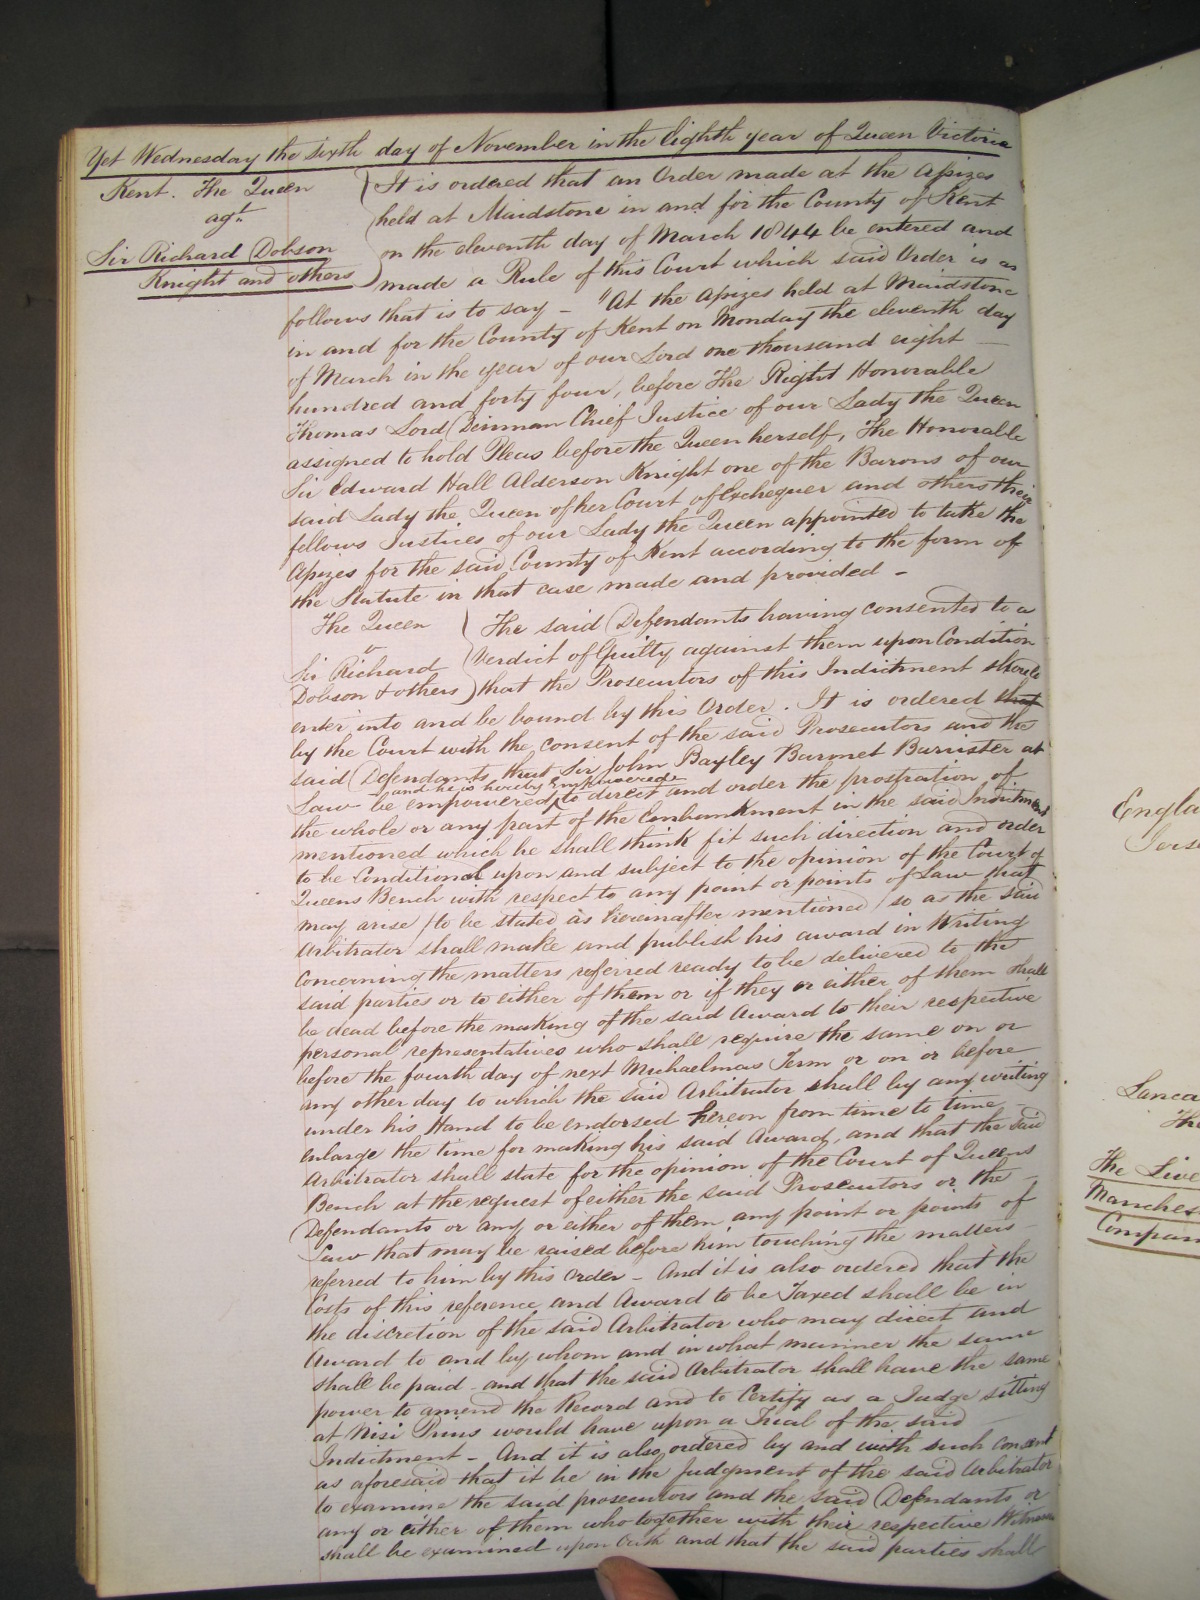 Yet Wednesday the sixth day of November in the Eighth year of Queen Victoria
Kent. The Queen
agt
Sir Richard Dobson
Knight and others
It is ordered that an Order made at the Assizes
held at Maidstone in and for the County of Kent
on the eleventh day of March 1844 be entered and
made a Rule of this Court which said Order is as
follows that is to say – "At the Assizes held at Maidstone
in and for the County of Kent on Monday the eleventh day
of March in the year of our Lord one thousand eight
hundred and forty four, before The Right Honorable
Thomas Lord Denman Chief Justice of our Lady the Queen
assigned to hold Pleas before the Queen herself, The Honorable
Sir Edward Hall Alderson Knight one of the Barons of our
said Lady the Queen of her Court of Exchequer and others their
fellows Justices of our Lady the Queen appointed to take the
Assizes for the said County of Kent according to the form of
the Statute in that case made and provided –
The Queen
v
Sir Richard
Dobson & others
The said Defendants having consented to a
Verdict of Guilty against them upon Condition
that the Prosecutors of this Indictment should
enter into and be bound by this Order. It is ordered that
by the Court with the consent of the said Prosecutors and the
said Defendants that Sir John Bayley Baronet Barrister at
and he is hereby empowered
Law be empowered to direct and order the prostration of
the whole or any part of the Embankment in the said Indictment
mentioned which he shall think fit such direction and order
to be Conditional upon and subject to the opinion of the Court of
Queens Bench with respect to any point or points of Law that
may arise (to be stated as hereinafter mentioned) so as the said
Arbitrator shall make and publish his award in Writing
Concerning the matters referred ready to be delivered to the
said parties or to either of them or if they or either of them shall
be dead before the making of the said Award to their respective
personal representatives who shall require the same on or
before the fourth day of next Michaelmas Term or on or before
any other day to which the said Arbitrator shall by any writing
under his Hand to be endorsed hereon from time to time
enlarge the time for making his said Award, and that the said
Arbitrator shall state for the opinion of the Court of Queens
Bench at the request of either the said Prosecutors or the
Defendants or any or either of them any point or points of
Law that may be raised before him touching the matters
referred to him by this Order – And it is also ordered that the
Costs of this reference and Award to be Taxed shall be in
the discretion of the said Arbitrator who may direct and
Award to and by whom and in what manner the same
shall be paid – and that the said Arbitrator shall have the same
power to amend the Record and to Certify as a Judge sitting
at Nisi Prius would have upon a Trial of the said
Indictment – And it is also ordered by and with such consent
as aforesaid that it be in the Judgment of the said Arbitrator
to examine the said prosecutors and the said Defendants or
any or either of them who together with their respective Witnesses
shall be examined upon Oath and that the said parties shall
Engla
Lanca
The
The Live
Manches
Compan